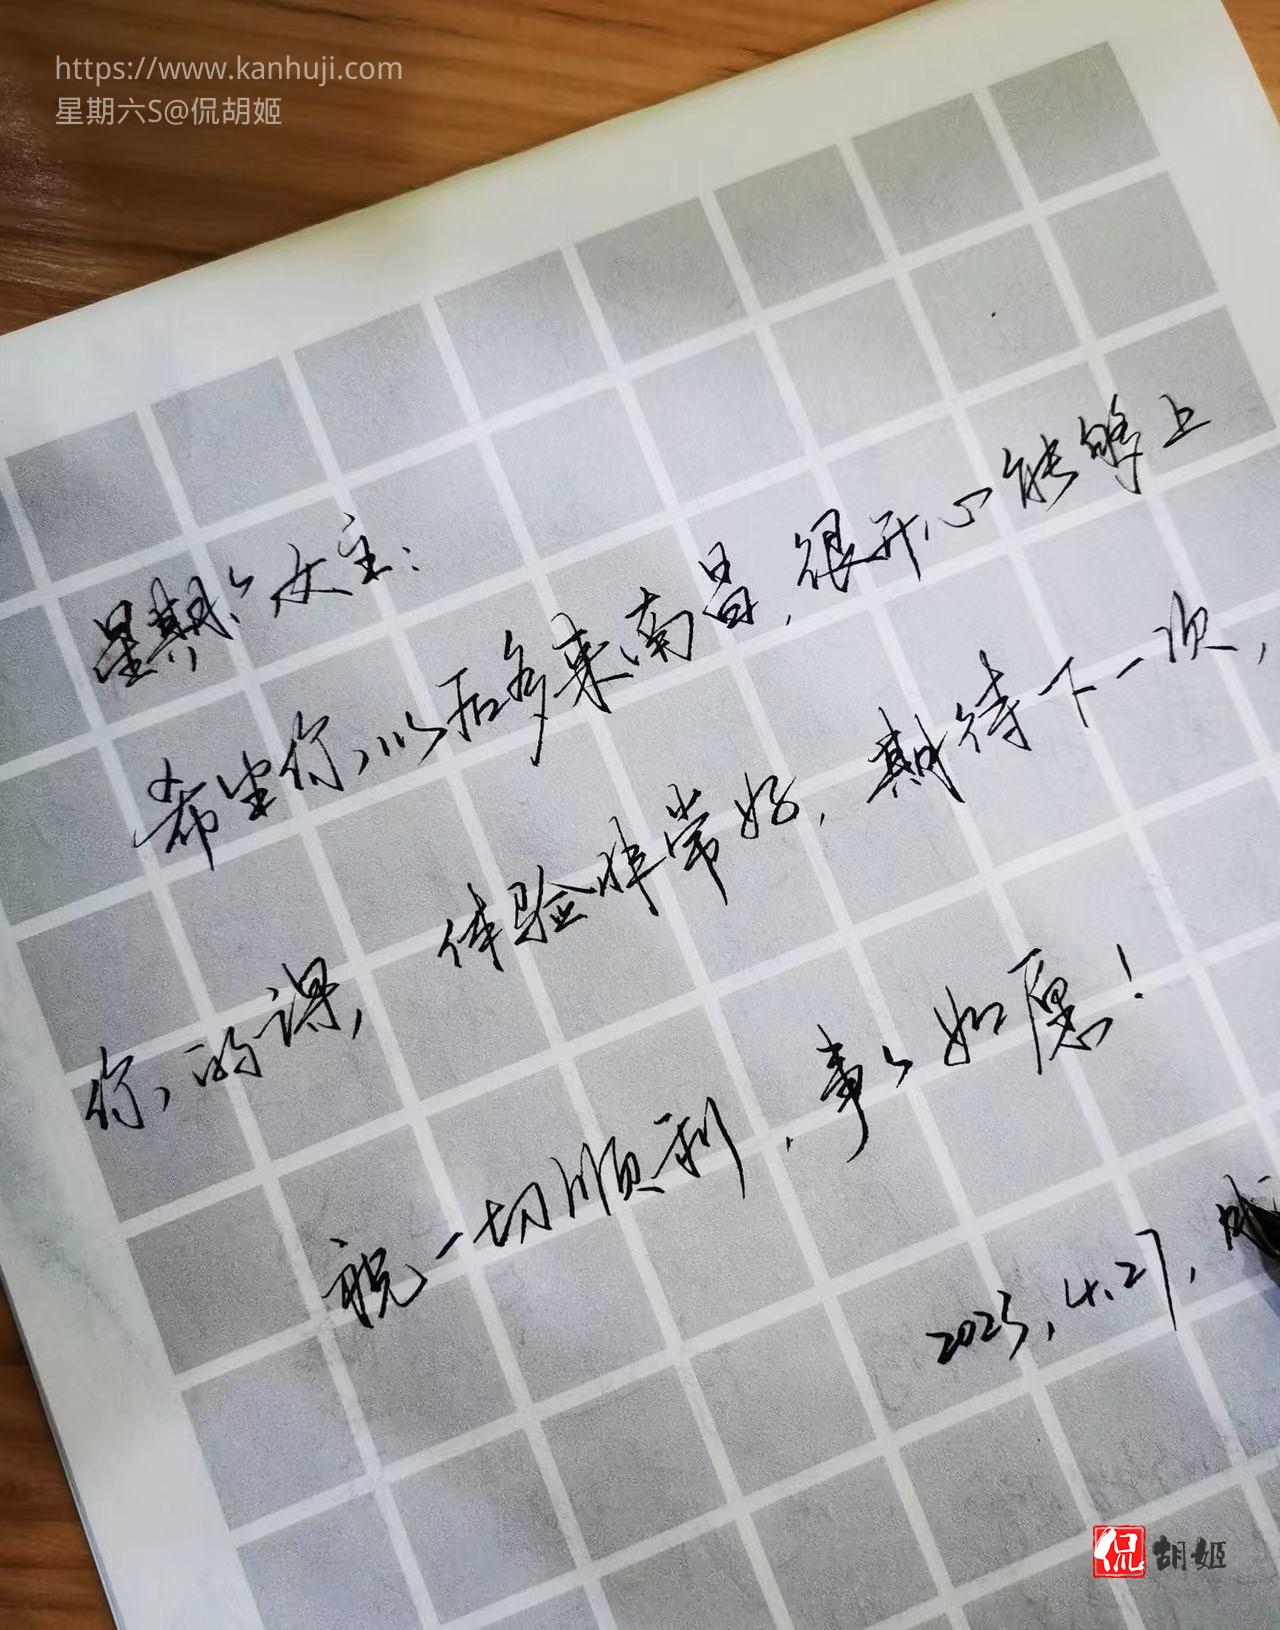 https://www.kanhuji.com
星期六S@侃胡姬
星期六女主：
希望你以后多来南昌，很开心能够上
你的课，体验非常好，期待下一次，
祝一切顺利，事事如愿！
2023.4.27，
侃胡姬